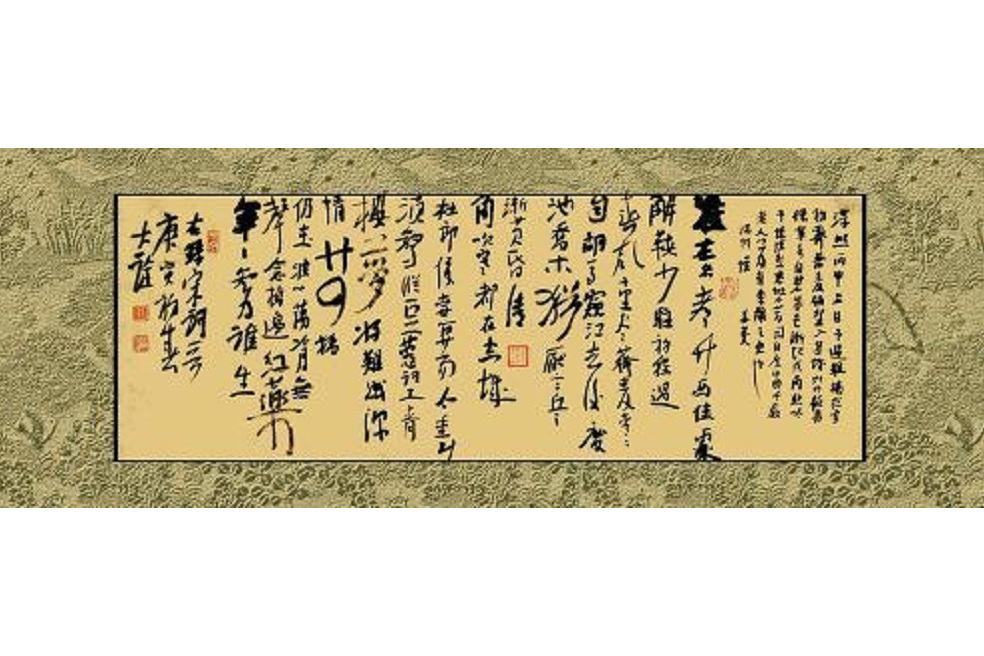 淳熙丙申至日予過維揚夜雪
初霽薺麥彌望入其城則四顧蕭
條寒水自碧暮色漸起戍角悲吟
予懷愴然感慨今昔因自度此曲千巖
老人以為有黍離之悲也
揚州慢
姜夔
淮左名都竹西佳處
解鞍少駐初程過
春風十里盡薺麥青青
自胡馬窺江去後廢
池喬木猶厭言兵
漸黃昏清
角吹寒都在空城
杜郎俊賞算而今重到
須驚縱豆蔻詞工青
樓夢好難賦深
情廿四橋
仍在波心蕩冷無
聲念橋邊紅藥
年年知為誰生
右錄宋詞一首
庚寅初春